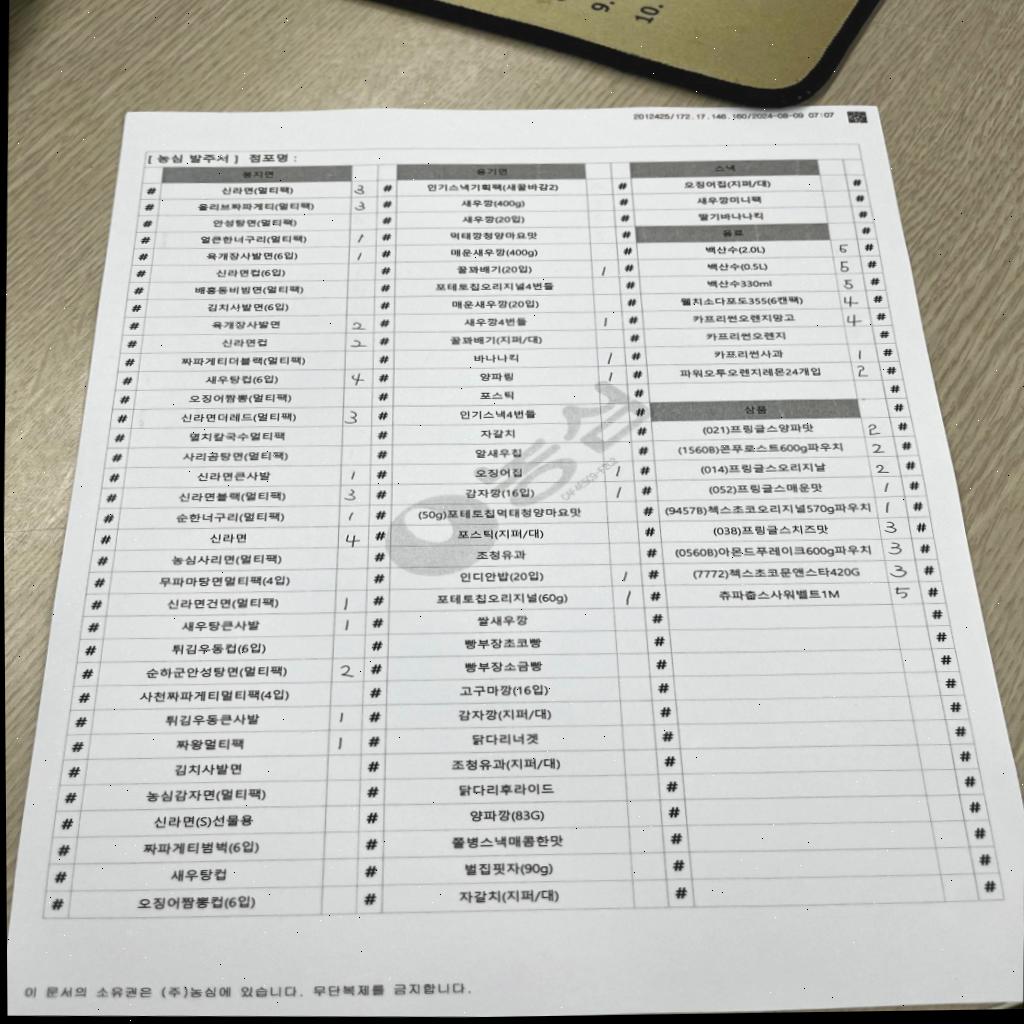 9.
10.
2012425/172.17.146.160/2024-08-09 07:07
[ 농심 발주서 ] 점포명 :
봉지면 용기면 스낵
# 신라면(멀티팩) 3 # 인기스낵기획팩(새꿀바감2) # 오징어집(지퍼/대) #
# 올리브짜파게티(멀티팩) 3 # 새우깡(400g) # 새우깡미니팩 #
# 안성탕면(멀티팩) # 새우깡(20입) # 딸기바나나킥 #
# 얼큰한너구리(멀티팩) 1 # 먹태깡청양마요맛 # 음료 #
# 육개장사발면(6입) 1 # 매운새우깡(400g) # 백산수(2.0L) 5 #
# 신라면컵(6입) # 꿀꽈배기(20입) 1 # 백산수(0.5L) 5 #
# 배홍동비빔면(멀티팩) # 포테토칩오리지널4번들 # 백산수330ml 5 #
# 김치사발면(6입) # 매운새우깡(20입) # 웰치소다포도355(6캔팩) 4 #
# 육개장사발면 2 # 새우깡4번들 1 # 카프리썬오렌지망고 4 #
# 신라면컵 2 # 꿀꽈배기(지퍼/대) # 카프리썬오렌지 #
# 짜파게티더블랙(멀티팩) # 바나나킥 1 # 카프리썬사과 1 #
# 새우탕컵(6입) 4 # 양파링 1 # 파워오투오렌지레몬24개입 2 #
# 오징어짬뽕(멀티팩) # 포스틱 # #
# 신라면더레드(멀티팩) 3 # 인기스낵4번들 # 상품 #
# 멸치칼국수멀티팩 # 자갈치 # (021)프링글스양파맛 2 #
# 사리곰탕면(멀티팩) # 알새우칩 # (1560B)콘푸로스트600g파우치 2 #
# 신라면큰사발 1 # 오징어집 1 # (014)프링글스오리지날 2 #
# 신라면블랙(멀티팩) 3 # 감자깡(16입) 1 # (052)프링글스매운맛 1 #
# 순한너구리(멀티팩) 1 # (50g)포테토칩먹태청양마요맛 # (9457B)첵스초코오리지널570g파우치 1 #
# 신라면 4 # 포스틱(지퍼/대) # (038)프링글스치즈맛 3 #
# 농심사리면(멀티팩) # 조청유과 # (0560B)아몬드푸레이크600g파우치 3 #
# 무파마탕면멀티팩(4입) # 인디안밥(20입) 1 # (7772)첵스초코문앤스타420G 3 #
# 신라면건면(멀티팩) 1 # 포테토칩오리지널(60g) 1 # 츄파춥스사워벨트1M 5 #
# 새우탕큰사발 1 # 쌀새우깡 # #
# 튀김우동컵(6입) # 빵부장초코빵 # #
# 순하군안성탕면(멀티팩) 2 # 빵부장소금빵 # #
# 사천짜파게티멀티팩(4입) # 고구마깡(16입) # #
# 튀김우동큰사발 1 # 감자깡(지퍼/대) # #
# 짜왕멀티팩 1 # 닭다리너겟 # #
# 김치사발면 # 조청유과(지퍼/대) # #
# 농심감자면(멀티팩) # 닭다리후라이드 # #
# 신라면(S)선물용 # 양파깡(83G) # #
# 짜파게티범벅(6입) # 쫄병스낵매콤한맛 # #
# 새우탕컵 # 벌집핏자(90g) # #
# 오징어짬뽕컵(6입) # 자갈치(지퍼/대) # #
농심
이 문서의 소유권은 (주)농심에 있습니다. 무단복제를 금지합니다.